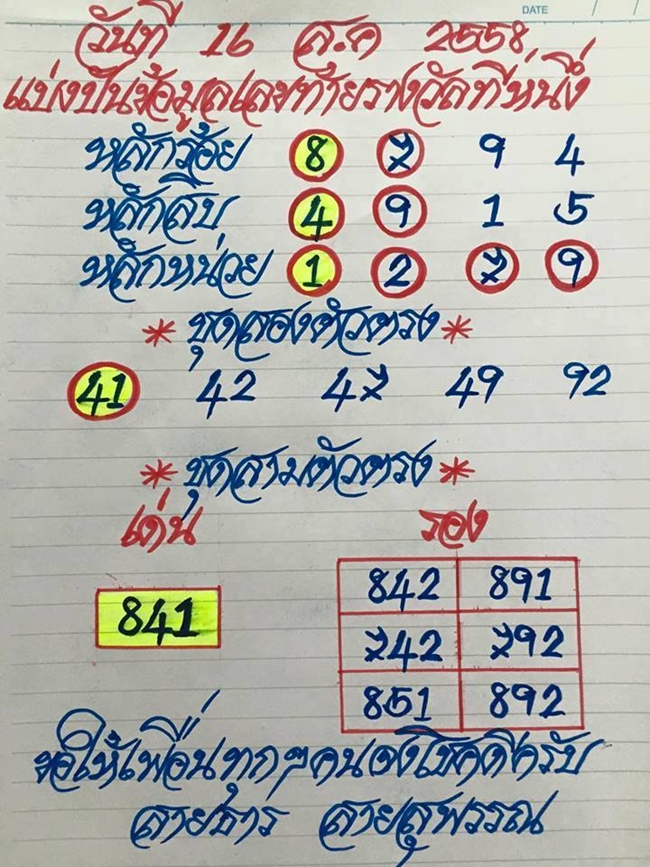 DATE / /
วันที่ 16 ส.ค 2558
แบ่งปันข้อมูลเลขท้ายรางวัลที่หนึ่ง
หลักร้อย 8 7 9 4
หลักสิบ 4 9 1 5
หลักหน่วย 1 2 7 9
* ชุดสองตัวตรง *
41 42 47 49 92
* ชุดสามตัวตรง *
เด่น รอง
841
842 891
742 792
851 892
ขอให้เพื่อนทุกๆคนจงโชคดีครับ
สายธาร สายสุพรรณ